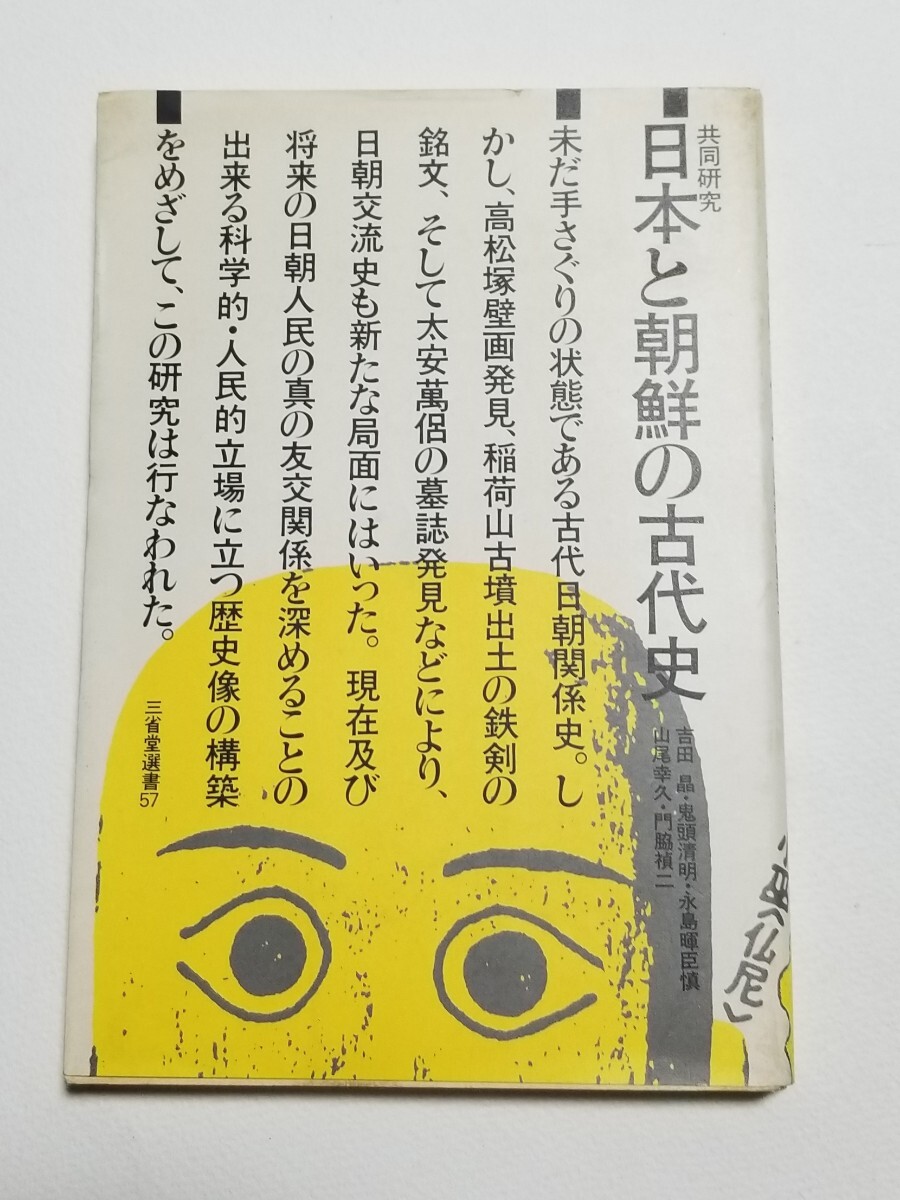 共同研究
日本と朝鮮の古代史
吉田 晶・鬼頭清明・永島暉臣慎
山尾幸久・門脇禎二
未だ手さぐりの状態である古代日朝関係史。し
かし、高松塚壁画発見、稲荷山古墳出土の鉄剣の
銘文、そして太安萬侶の墓誌発見などにより、
日朝交流史も新たな局面にはいった。現在及び
将来の日朝人民の真の友交関係を深めることの
出来る科学的・人民的立場に立つ歴史像の構築
をめざして、この研究は行なわれた。
三省堂選書57